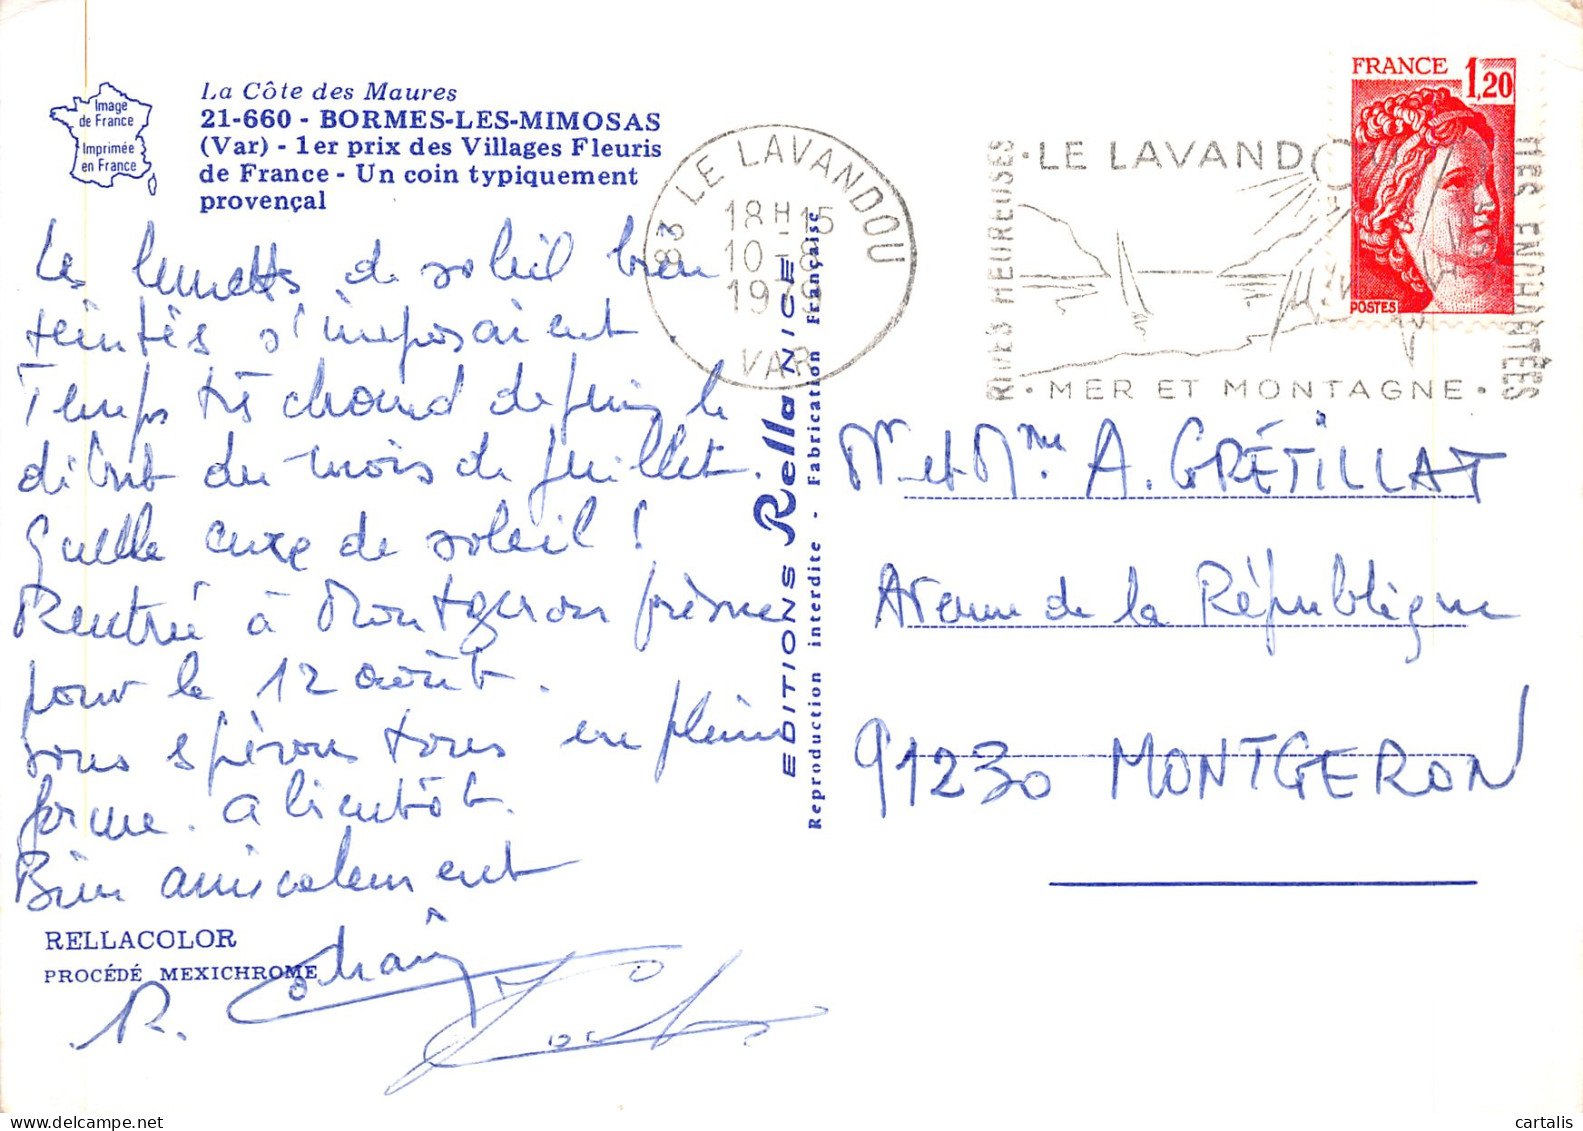 Image
de France
Imprimée
en France
La Côte des Maures
21-660 - BORMES-LES-MIMOSAS
(Var) - 1er prix des Villages Fleuris
de France - Un coin typiquement
provençal
Les lunettes de soleil bien
teintées s'imposaient
Temps très chaud de juin, le
début du mois de juillet.
Quelle cure de soleil !
Rentrée à Montgeron prévue
pour le 12 août.
vous espérons tous en pleine
forme. A bientôt.
Bien amicalement
R.
RELLACOLOR
PROCÉDÉ MEXICHROME
EDITIONS Rella NICE
Reproduction interdite - Fabrication Française
83 LE LAVANDOU
18H15
10-8
1979
VAR
RIVES HEUREUSES
· LE LAVANDOU
· MER ET MONTAGNE ·
RIVES ENCHANTÉES
FRANCE 1,20
POSTES
Mr et Mme A. GRÉTILLAT
Avenue de la République
91230 MONTGERON
cartalis
delcampe.net